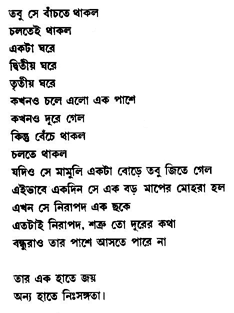 তবু সে বাঁচতে থাকল
চলতেই থাকল
একটা ঘরে
দ্বিতীয় ঘরে
তৃতীয় ঘরে
কখনও চলে এলো এক পাশে
কখনও দূরে গেল
কিন্তু বেঁচে থাকল
চলতে থাকল
যদিও সে মামুলি একটা বোড়ে তবু জিতে গেল
এইভাবে একদিন সে এক বড় মাপের মোহরা হল
এখন সে নিরাপদ এক ছকে
এতটাই নিরাপদ, শত্রু তো দূরের কথা
বন্ধুরাও তার পাশে আসতে পারে না
তার এক হাতে জয়
অন্য হাতে নিঃসঙ্গতা।